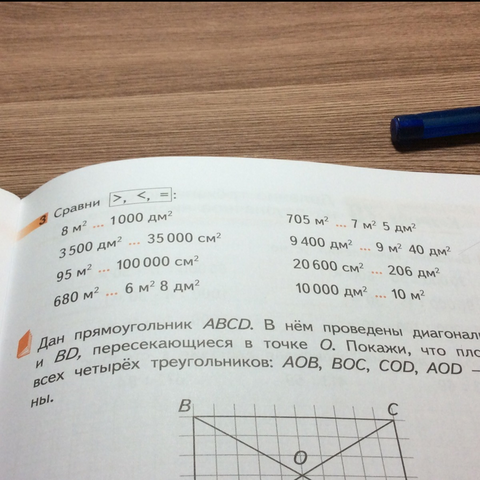 3 Сравни >, <, =:
8 м² ... 1000 дм²
3 500 дм² ... 35 000 см²
95 м² ... 100 000 см²
680 м² ... 6 м² 8 дм²
705 м² ... 7 м² 5 дм²
9 400 дм² ... 9 м² 40 дм²
20 600 см² ... 206 дм²
10 000 дм² ... 10 м²
Дан прямоугольник ABCD. В нём проведены
и BD, пересекающиеся в точке O. Покажи, что
всех четырёх треугольников: AOB, BOC, COD, AOD –
ны.
B C
O